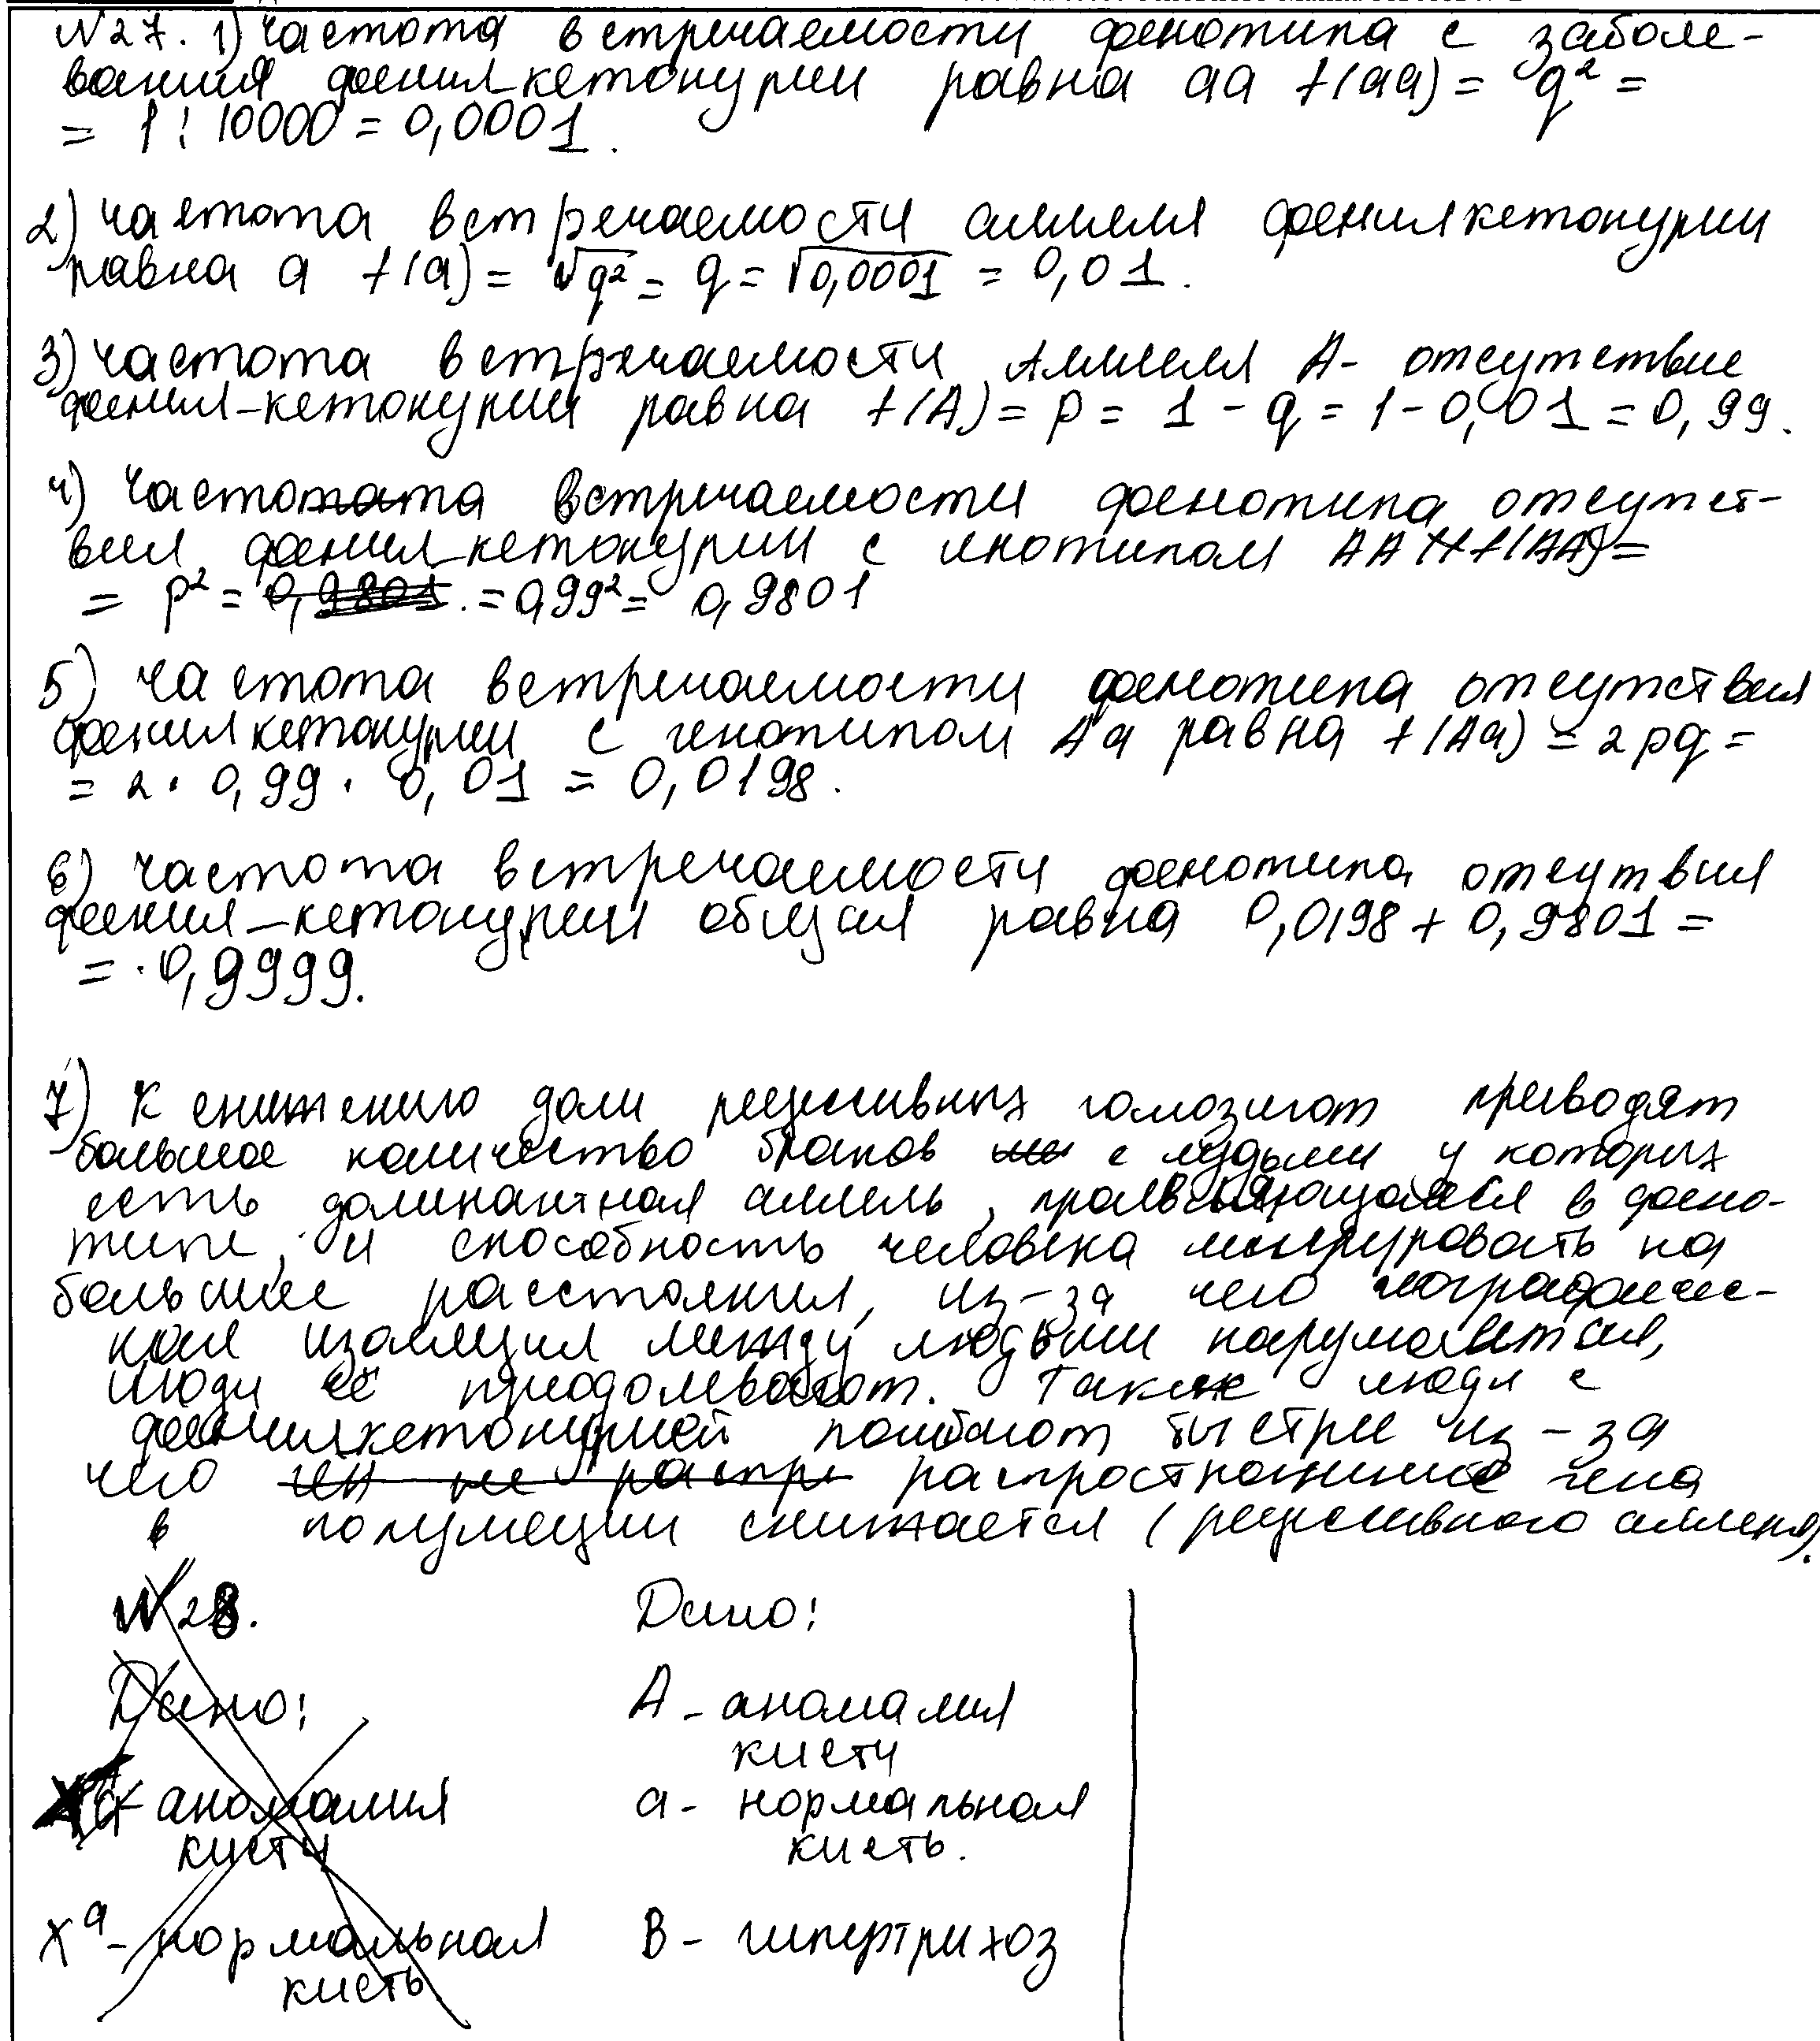 N27. 1) Частота встречаемости фенотипа с заболе-
вания фенилкетонурии равна aa f(aa) = q² =
= 1 : 10000 = 0,0001.
2) частота встречаемости аллеля фенилкетонурии
равна a f(a) = √q² = q = √0,0001 = 0,01.
3) частота встречаемости Аллеля A- отсутствие
фенил-кетонурии равна f(A) = p = 1 - q = 1 - 0,01 = 0,99.
4) частота встречаемости фенотипа отсутст-
вия фенил-кетонурии с генотипом AA f(AA) =
= p² = 0,9801. = 0,99² = 0,9801
5) частота встречаемости фенотипа отсутствия
фенилкетонурии с генотипом Aa равна f(Aa) = 2pq =
= 2 · 0,99 · 0,01 = 0,0198.
6) частота встречаемости фенотипа отсутвия
фенил-кетонурии общая равна 0,0198 + 0,9801 =
= 0,9999.
7) К снижению доли рецессивных гомозигот приводят
большое количество браков с людьми у которых
есть доминантная аллель, проявляющаяся в фено-
типе, и способность человека мигрировать на
большие расстояния, из-за чего географичес-
кая изоляция между людьми нарушается,
люди её преодолевают. Также люди с
фенилкетонурией погибают быстрее из-за
чего ген не распр распространение гена
в популяции снижается (рецессивного аллеля).
N28. Дано:
Дано: A - аномалия
кисти
аномалия a - нормальная
кисти кисть.
Xᵃ - нормальная B - гипертрихоз
кисть